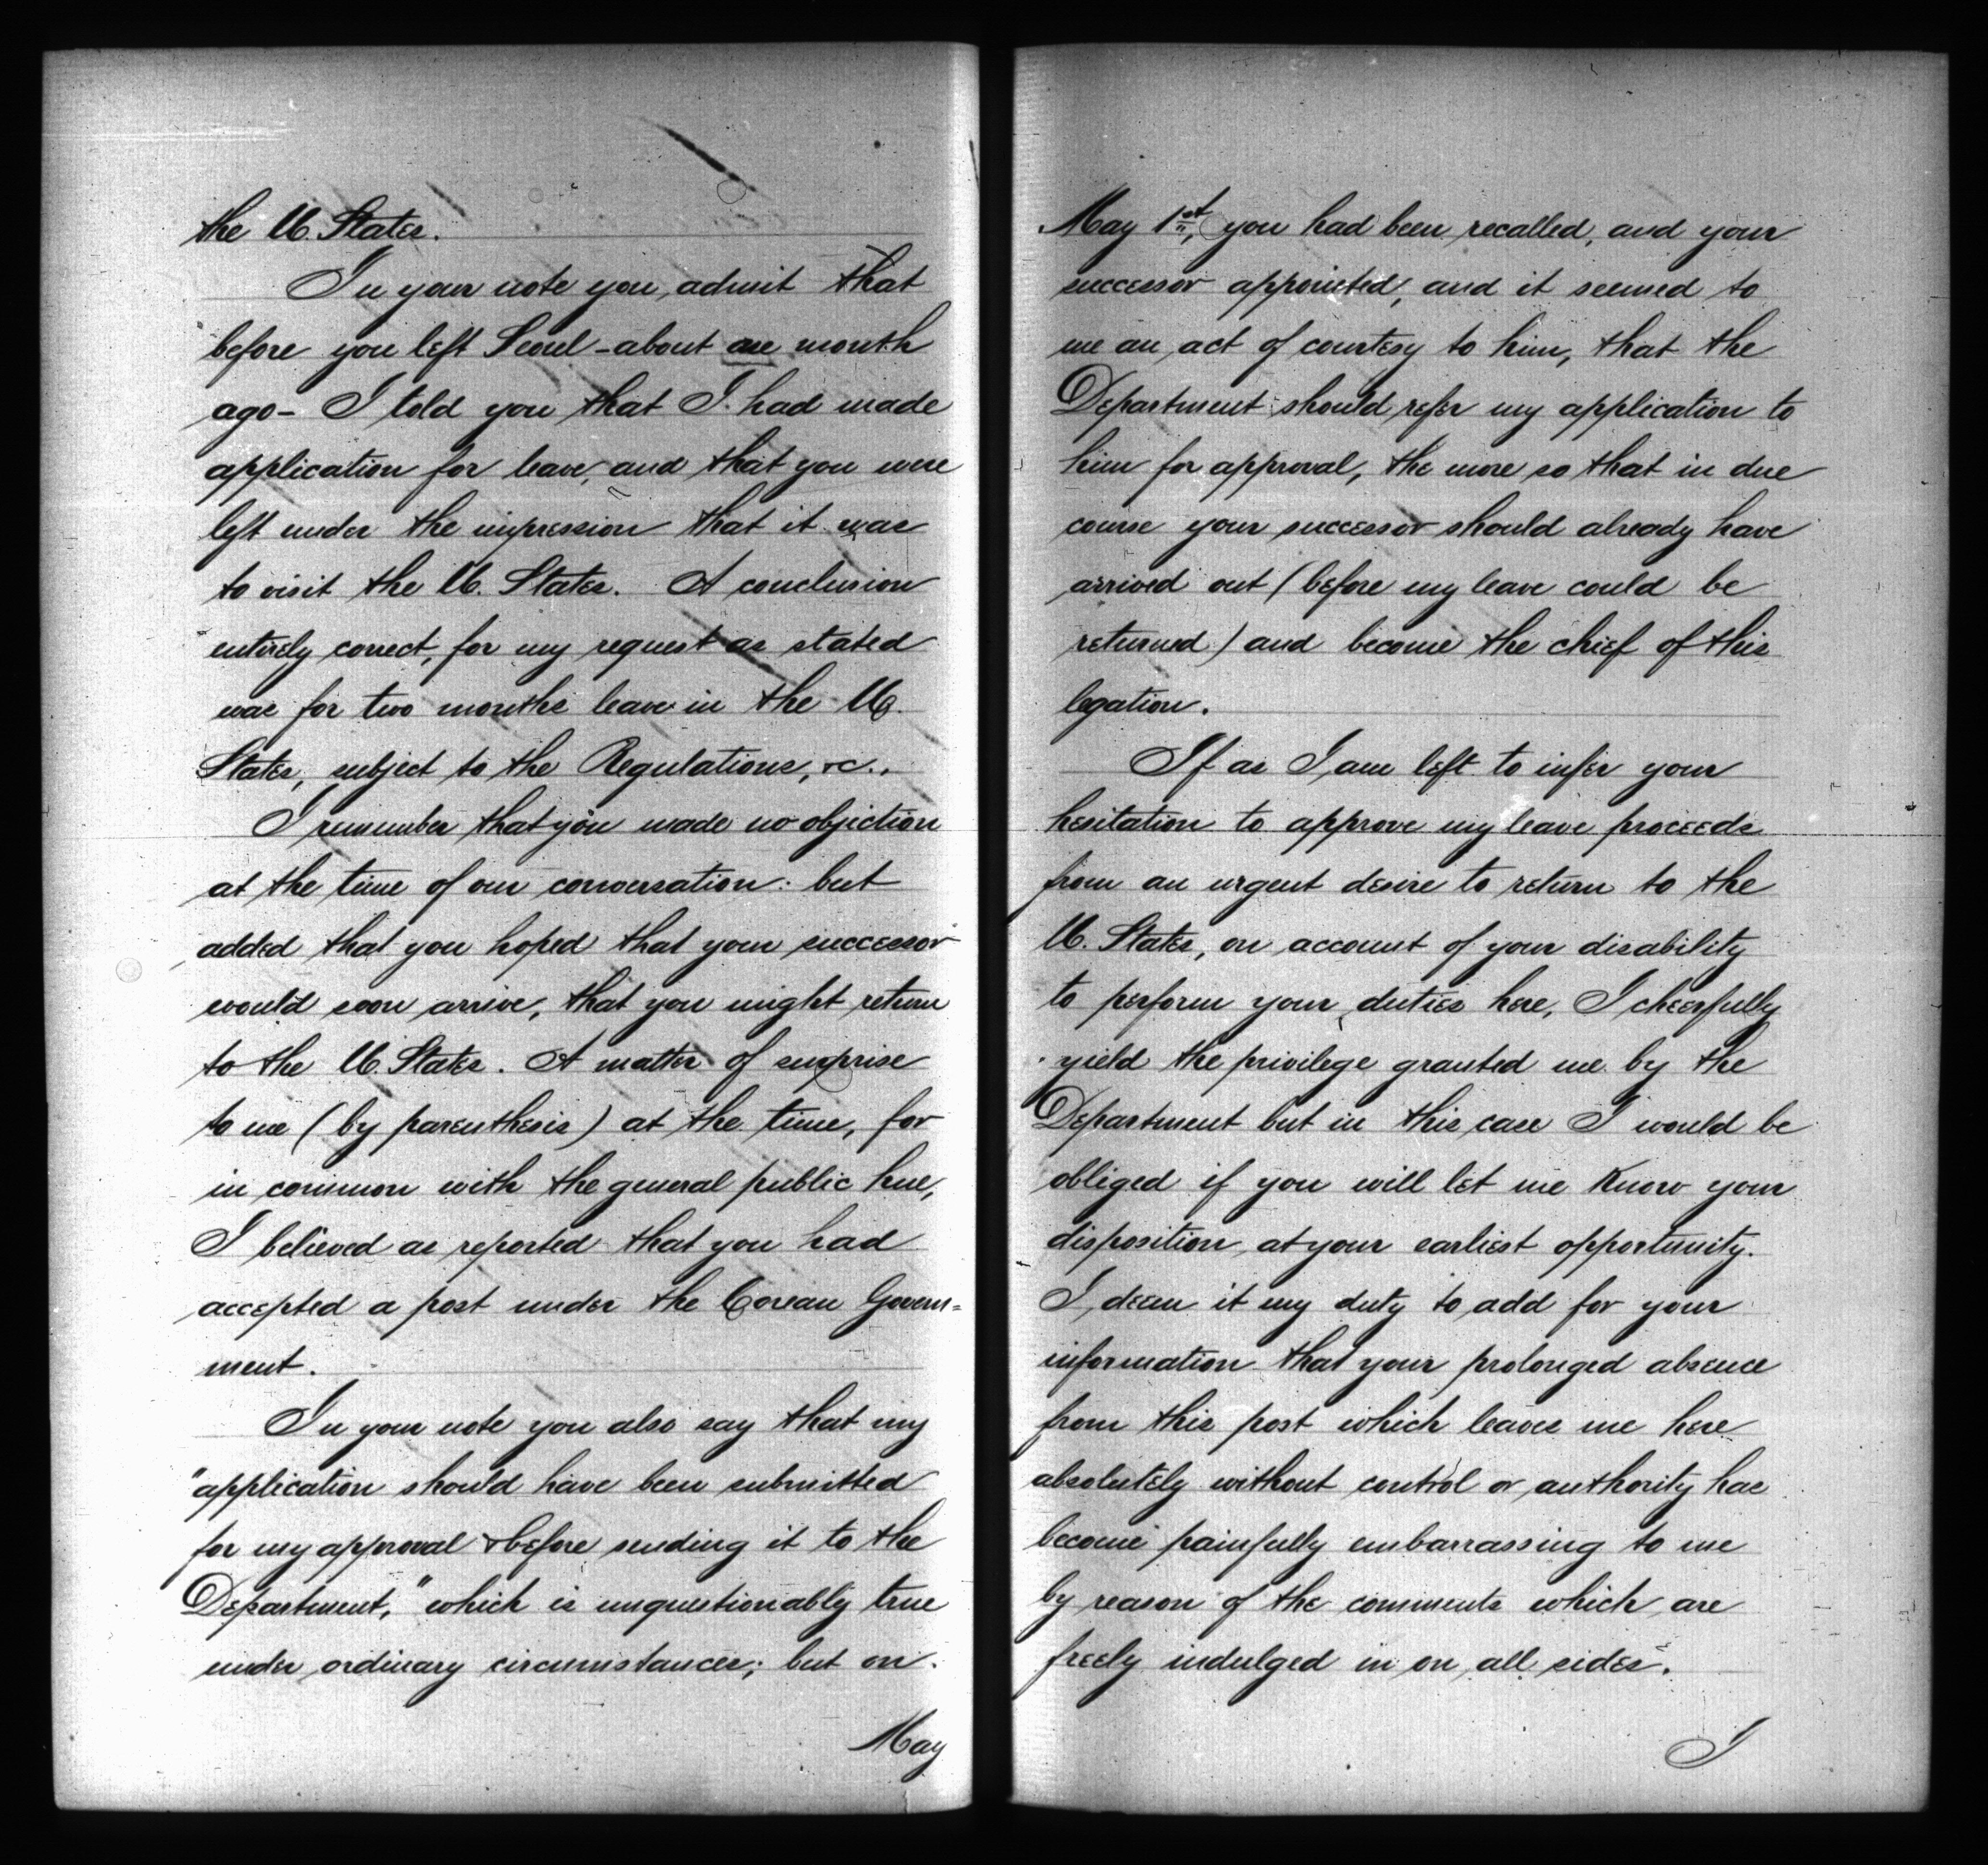 the U. States.
In your note you admit that
before you left Seoul - about one month
ago - I told you that I had made
application for leave, and that you were
left under the impression that it was
to visit the U. States. A conclusion
entirely correct, for my request as stated
was for two months leave in the U.
States, subject to the Regulations, &c.,
I remember that you made no objection
at the time of our conversation: but
added that you hoped that your successor
would soon arrive, that you might return
to the U. States. A matter of surprise
to me (by parenthesis) at the time, for
in common with the general public here,
I believed as reported that you had
accepted a post under the Corean Govern=
ment.
In your note you also say that my
"application should have been submitted
for my approval before sending it to the
Department," which is unquestionably true
under ordinary circumstances; but on
May
May 1st, you had been recalled, and your
successor appointed, and it seemed to
me an act of courtesy to him, that the
Department should refer my application to
him for approval, the more so that in due
course your successor should already have
arrived out (before my leave could be
returned) and become the chief of this
legation.
If as I am left to infer your
hesitation to approve my leave proceeds
from an urgent desire to return to the
U. States, on account of your disability
to perform your duties here, I cheerfully
yield the privilege granted me by the
Department but in this case I would be
obliged if you will let me know your
disposition at your earliest opportunity.
I deem it my duty to add for your
information that your prolonged absence
from this post which leaves me here
absolutely without control or authority has
become painfully embarrassing to me
by reason of the comments which are
freely indulged in on all sides.
I